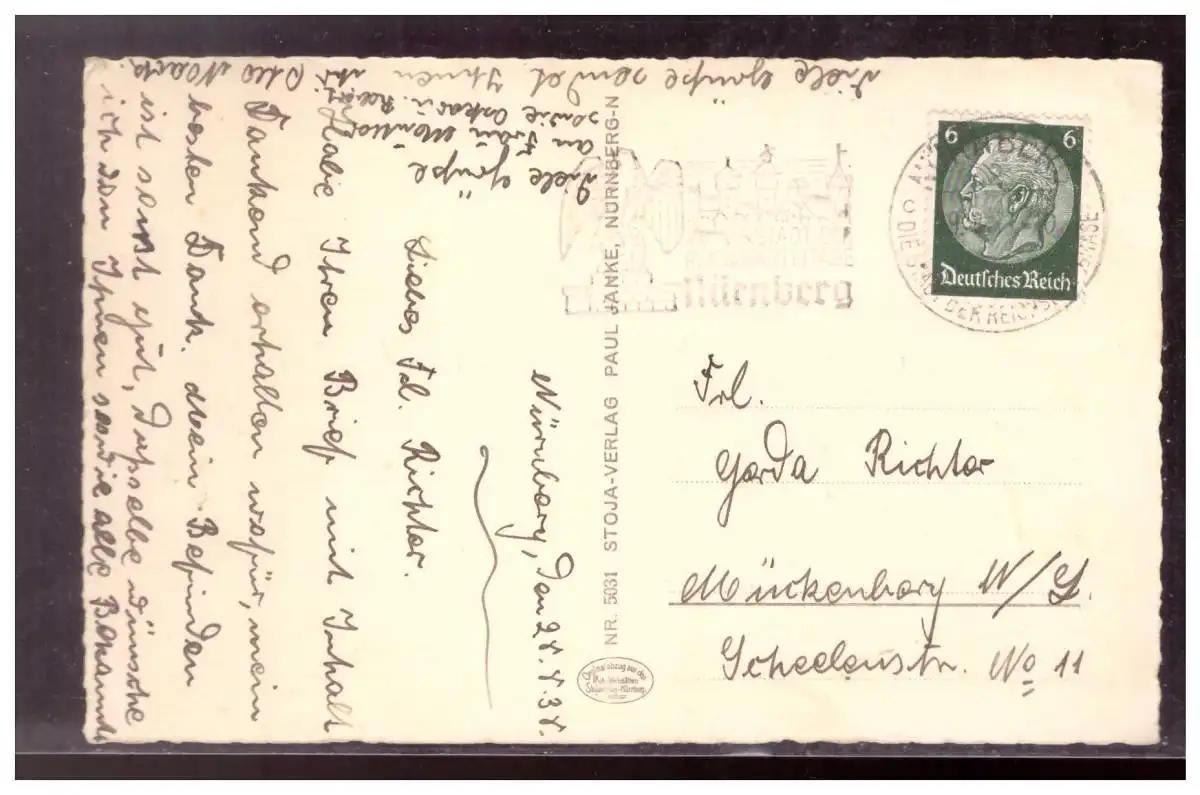 Nürnberg, den 28.8.38.
Liebes Frl. Richter.
Habe Ihren Brief mit Inhalt
Dankend erhalten wofür, mein
besten Dank. Mein Befinden
ist sonst gut, dasselbe wünsche
ich von Ihnen sowie alle Bekannte
Viele Grüße sendet Ihnen
Otto
Viele Grüße
an Frau
sowie Oskar u.
NR. 5031 STOJA-VERLAG PAUL JANKE, NÜRNBERG-N
Nürnberg
DIE STADT DER REICHSPARTEITAGE
6 6
Deutsches Reich
Frl.
Gerda Richter
Mückenberg N/L.
Scheelenstr. No 11